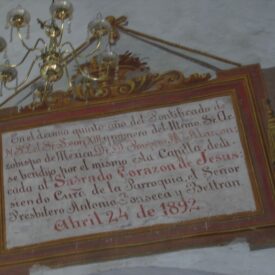 En el decimo quinto año del Pontificado de
N. S. el Sr. Leon XIII y primero del Illmo. Sr. Ar
zobispo de Mexico Dr. D. Prospero M. Alarcon:
se bendijo por el mismo esta Capilla dedi
cada al Sagrado Corazon de Jesus:
siendo Cura de la Parroquia el Señor
Presbitero Antonio Fonseca y Beltran.
Abril 24 de 1892.